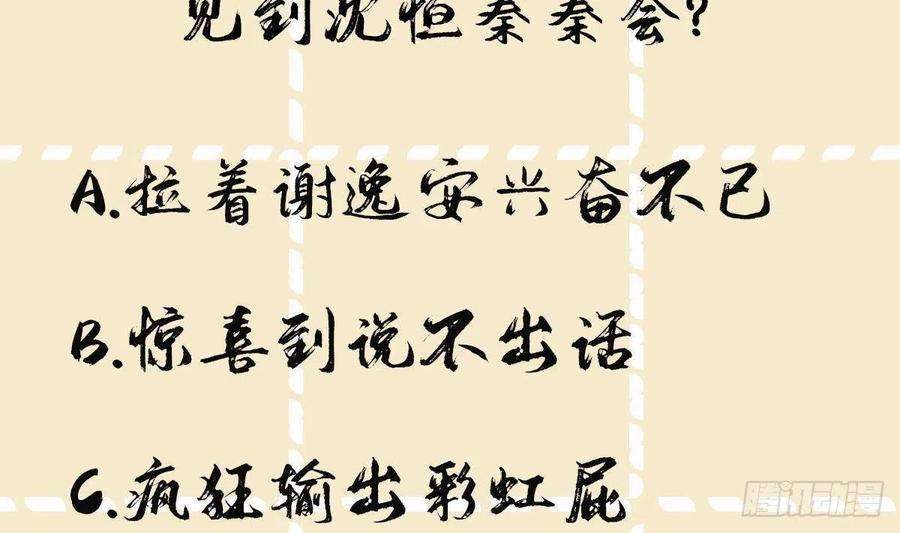 见到沈恒秦秦会？
A.拉着谢逸安兴奋不已
B.惊喜到说不出话
C.疯狂输出彩虹屁
腾讯动漫